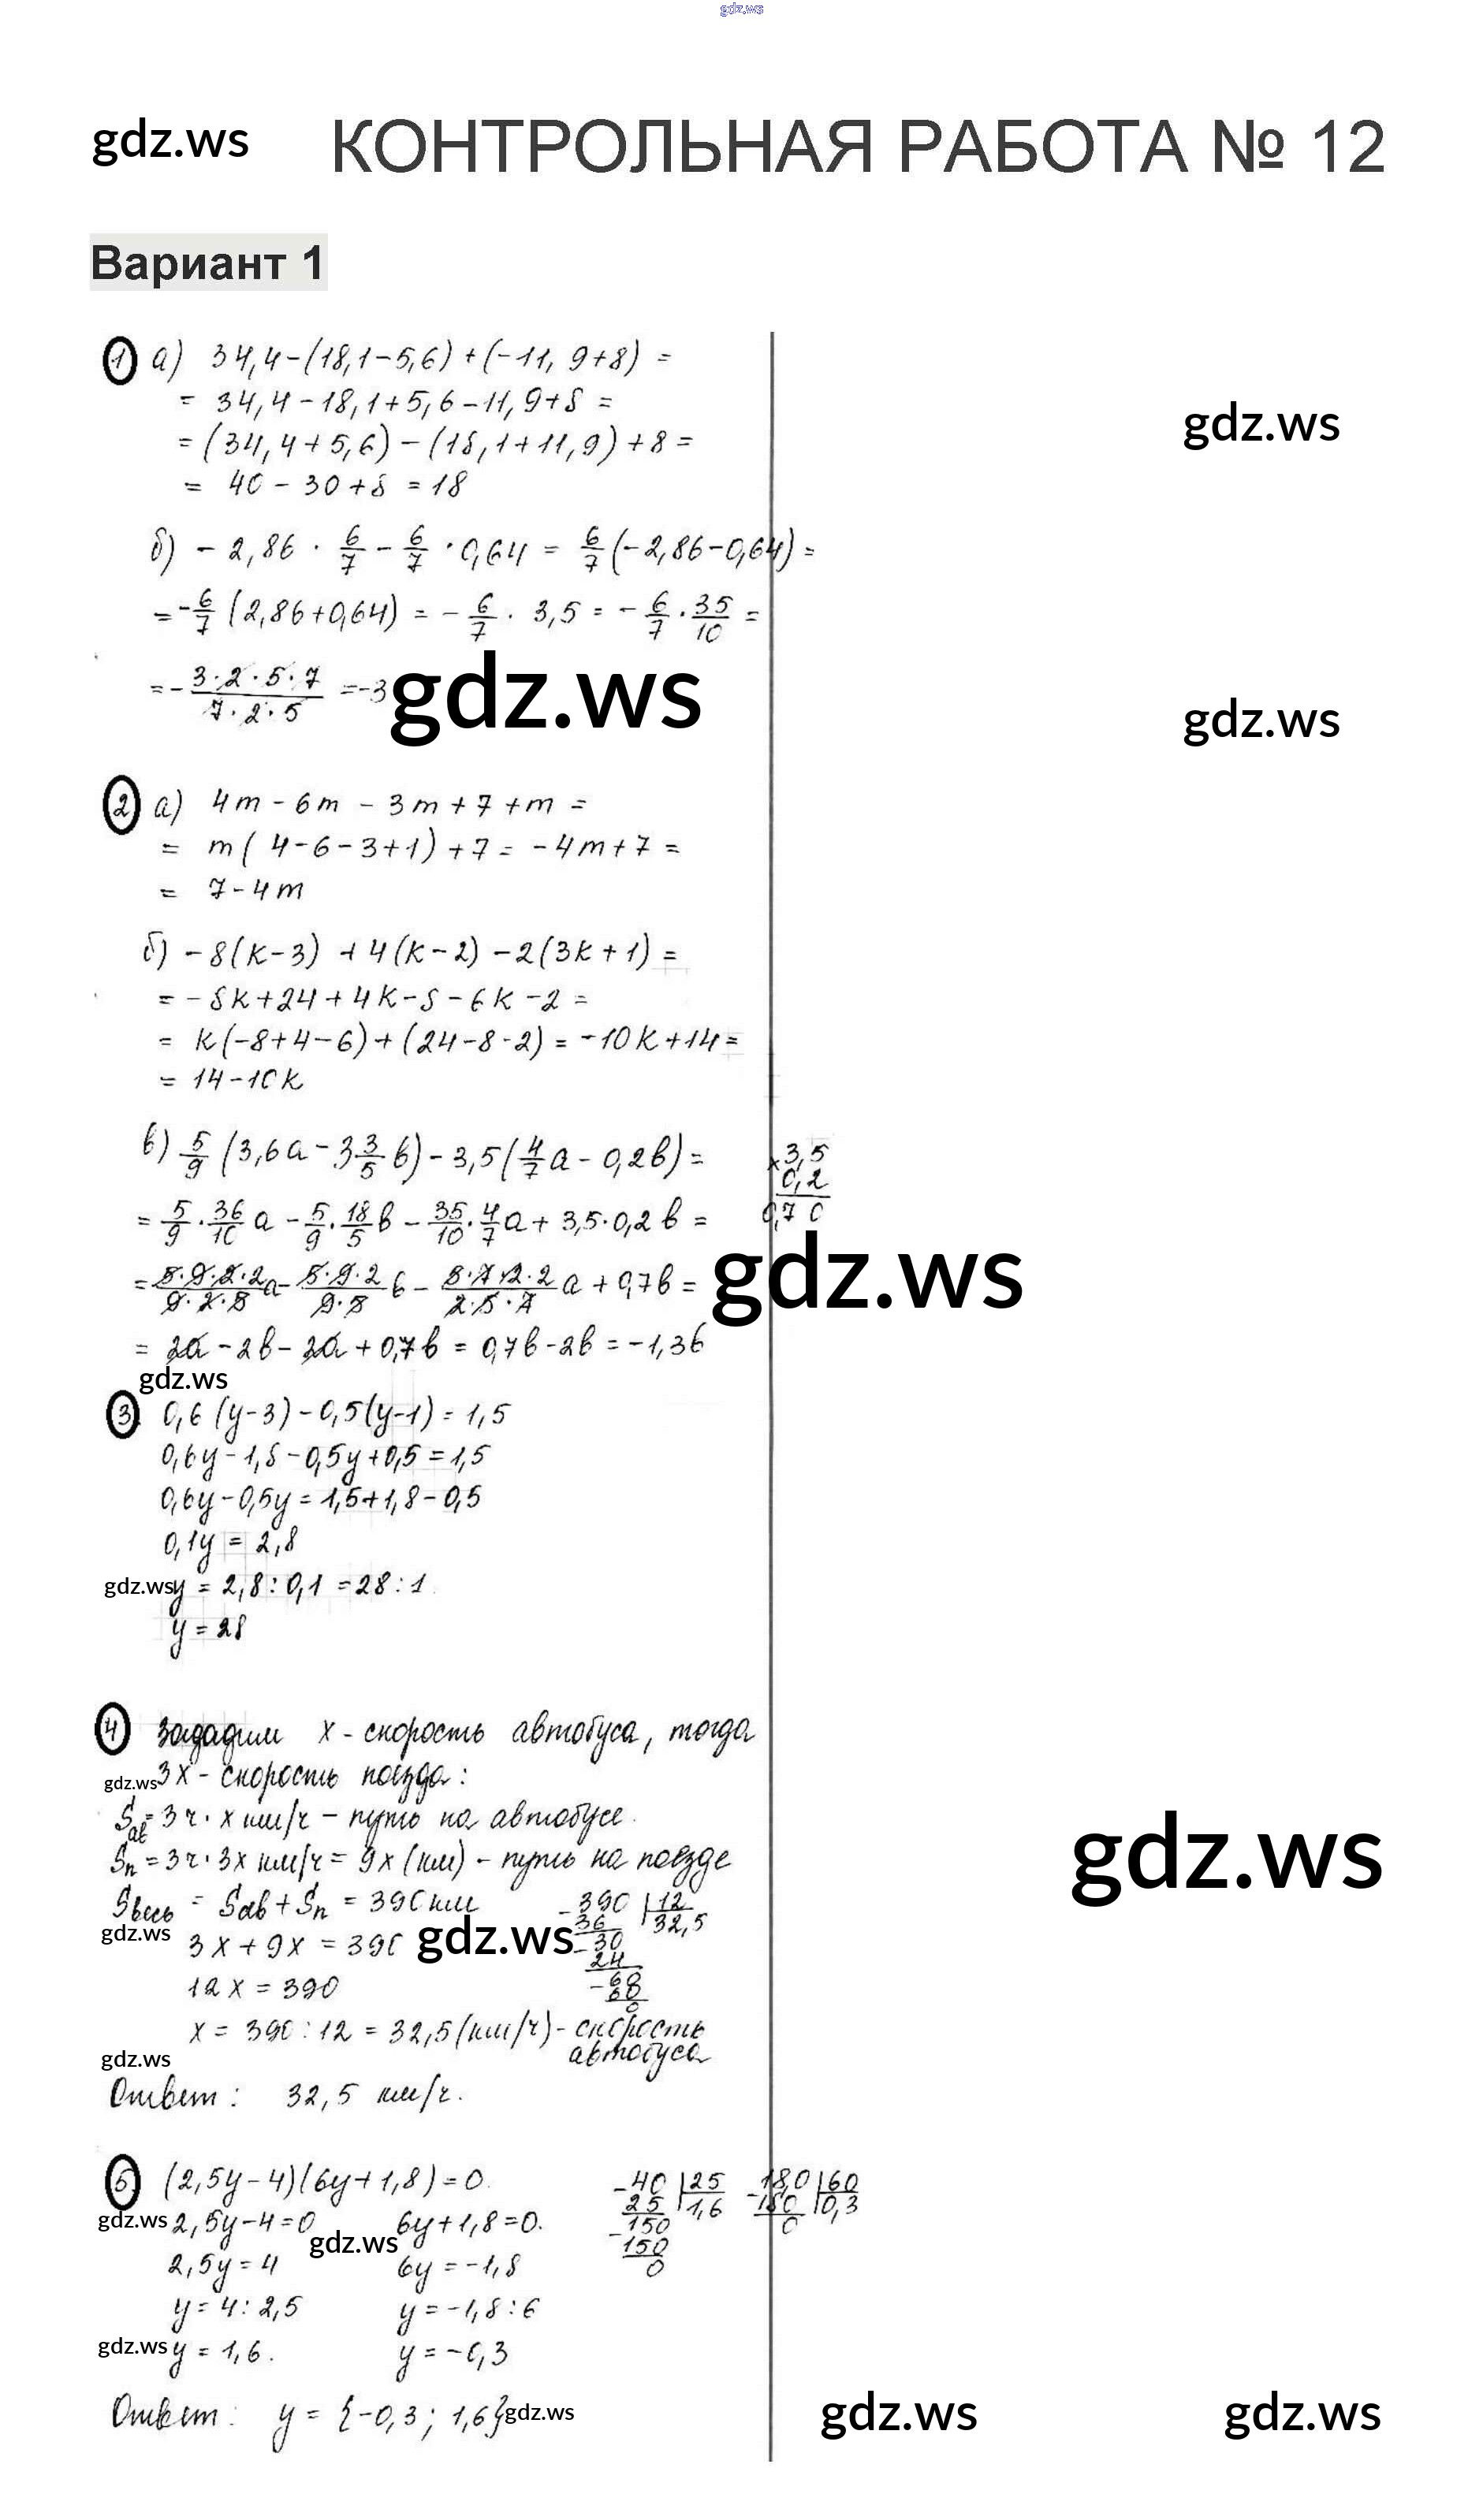 gdz.ws
gdz.ws КОНТРОЛЬНАЯ РАБОТА № 12
Вариант 1
1 а) 34,4-(18,1-5,6)+(-11,9+8) =
= 34,4-18,1+5,6-11,9+8 =
gdz.ws
= (34,4+5,6)-(18,1+11,9)+8 =
= 40-30+8 = 18
б) -2,86 · 6/7 - 6/7 · 0,64 = 6/7 (-2,86-0,64) =
= -6/7 (2,86+0,64) = -6/7 · 3,5 = -6/7 · 35/10 =
= - 3·2·5·7 / 7·2·5 = -3
gdz.ws
gdz.ws
2 а) 4m - 6m - 3m + 7 + m =
= m( 4-6-3+1) + 7 = -4m+7 =
= 7-4m
б) -8(k-3) + 4(k-2) - 2(3k+1) =
= -8k+24+4k-8-6k-2 =
= k(-8+4-6)+(24-8-2) = -10k+14 =
= 14-10k
в) 5/9 (3,6a - 3 3/5 b) - 3,5(4/7 a - 0,2b) =
×3,5
0,2
0,70
= 5/9 · 36/10 a - 5/9 · 18/5 b - 35/10 · 4/7 a + 3,5·0,2b =
= 5·9·2·2 / 9·2·5 a - 5·9·2 / 9·5 b - 5·7·2·2 / 2·5·7 a + 0,7b =
gdz.ws
= 2a - 2b - 2a + 0,7b = 0,7b - 2b = -1,3b
gdz.ws
3 0,6(y-3)-0,5(y-1) = 1,5
0,6y-1,8-0,5y+0,5 = 1,5
0,6y-0,5y = 1,5+1,8-0,5
0,1y = 2,8
gdz.ws
y = 2,8:0,1 = 28:1
y = 28
4 Зададим x - скорость автобуса, тогда
gdz.ws
3x - скорость поезда:
Sав = 3ч · x км/ч - путь на автобусе.
Sп = 3ч · 3x км/ч = 9x (км) - путь на поезде
gdz.ws
Sвесь = Sав + Sп = 390 км
-390 | 12
36 32,5
gdz.ws
3x + 9x = 390
gdz.ws
-30
24
12x = 390
-60
60
0
x = 390:12 = 32,5 (км/ч) - скорость
автобуса
gdz.ws
Ответ: 32,5 км/ч.
5 (2,5y-4)(6y+1,8) = 0.
-40 | 25
25 1,6
-150
150
0
-18,0 | 60
-180 0,3
0
gdz.ws
2,5y-4 = 0 6y+1,8 = 0.
gdz.ws
2,5y = 4 6y = -1,8
y = 4:2,5 y = -1,8:6
gdz.ws
y = 1,6. y = -0,3
Ответ: y = {-0,3; 1,6}
gdz.ws
gdz.ws
gdz.ws